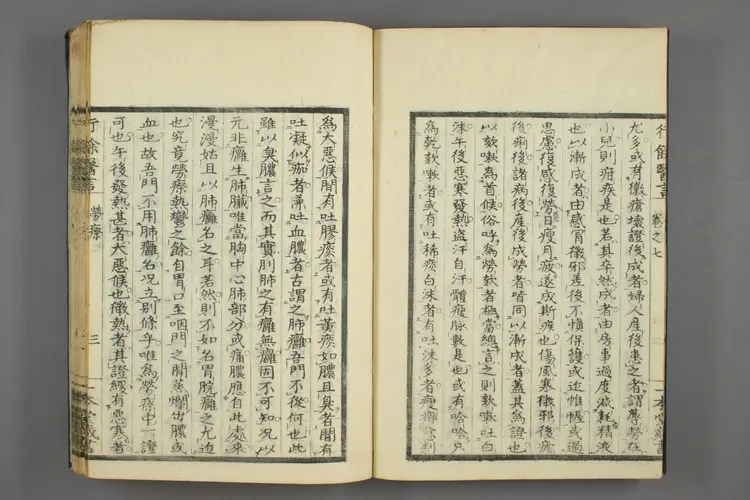 行餘醫言 卷之七
尤多或有黴瘡壞證後成者婦人産後患之者謂蓐勞在
小兒則疳疾是也若其卒然成者由房事過度滅耗精液
也以漸成者由感冐微邪差後不愼保護或近帷幄或過
思慮復感復勞日瘦月疲遂成斯疾也傷風寒微邪後瘧
後痢後諸病後産後成勞者皆同以漸成者蓋其為證也
以欬嗽為首候俗呼為勞欬者樞當總言之則欬嗽吐白
沫午後惡寒發熱盜汗自汗體瘦脉數是也或有哈哈只
為乾欬嗽者或有吐稀痰白沫者有吐沫多者
為大惡候間有吐膠痰者或有吐黃痰如膿且臭者間有
吐凝似痴者兼吐血膿者古謂之肺癰吾門不從何也此
雖以臭膿言之而其實則肺之有癰無癰固不可知况以
元非癰生肺臟唯當胸中心肺部分或痛膿應自此處來
漫漫姑且以肺癰名之耳若然則不如名胃脘癰之尤近
也究竟勞瘵熱鬱之餘自胃口至咽門之間蒸爛出膿或
血也故吾門不用肺癰名况立別條乎唯為勞瘵中一證
可也午後發熱甚者大惡候也微熱者其證經有惡寒者
行餘醫言 勞瘵 三